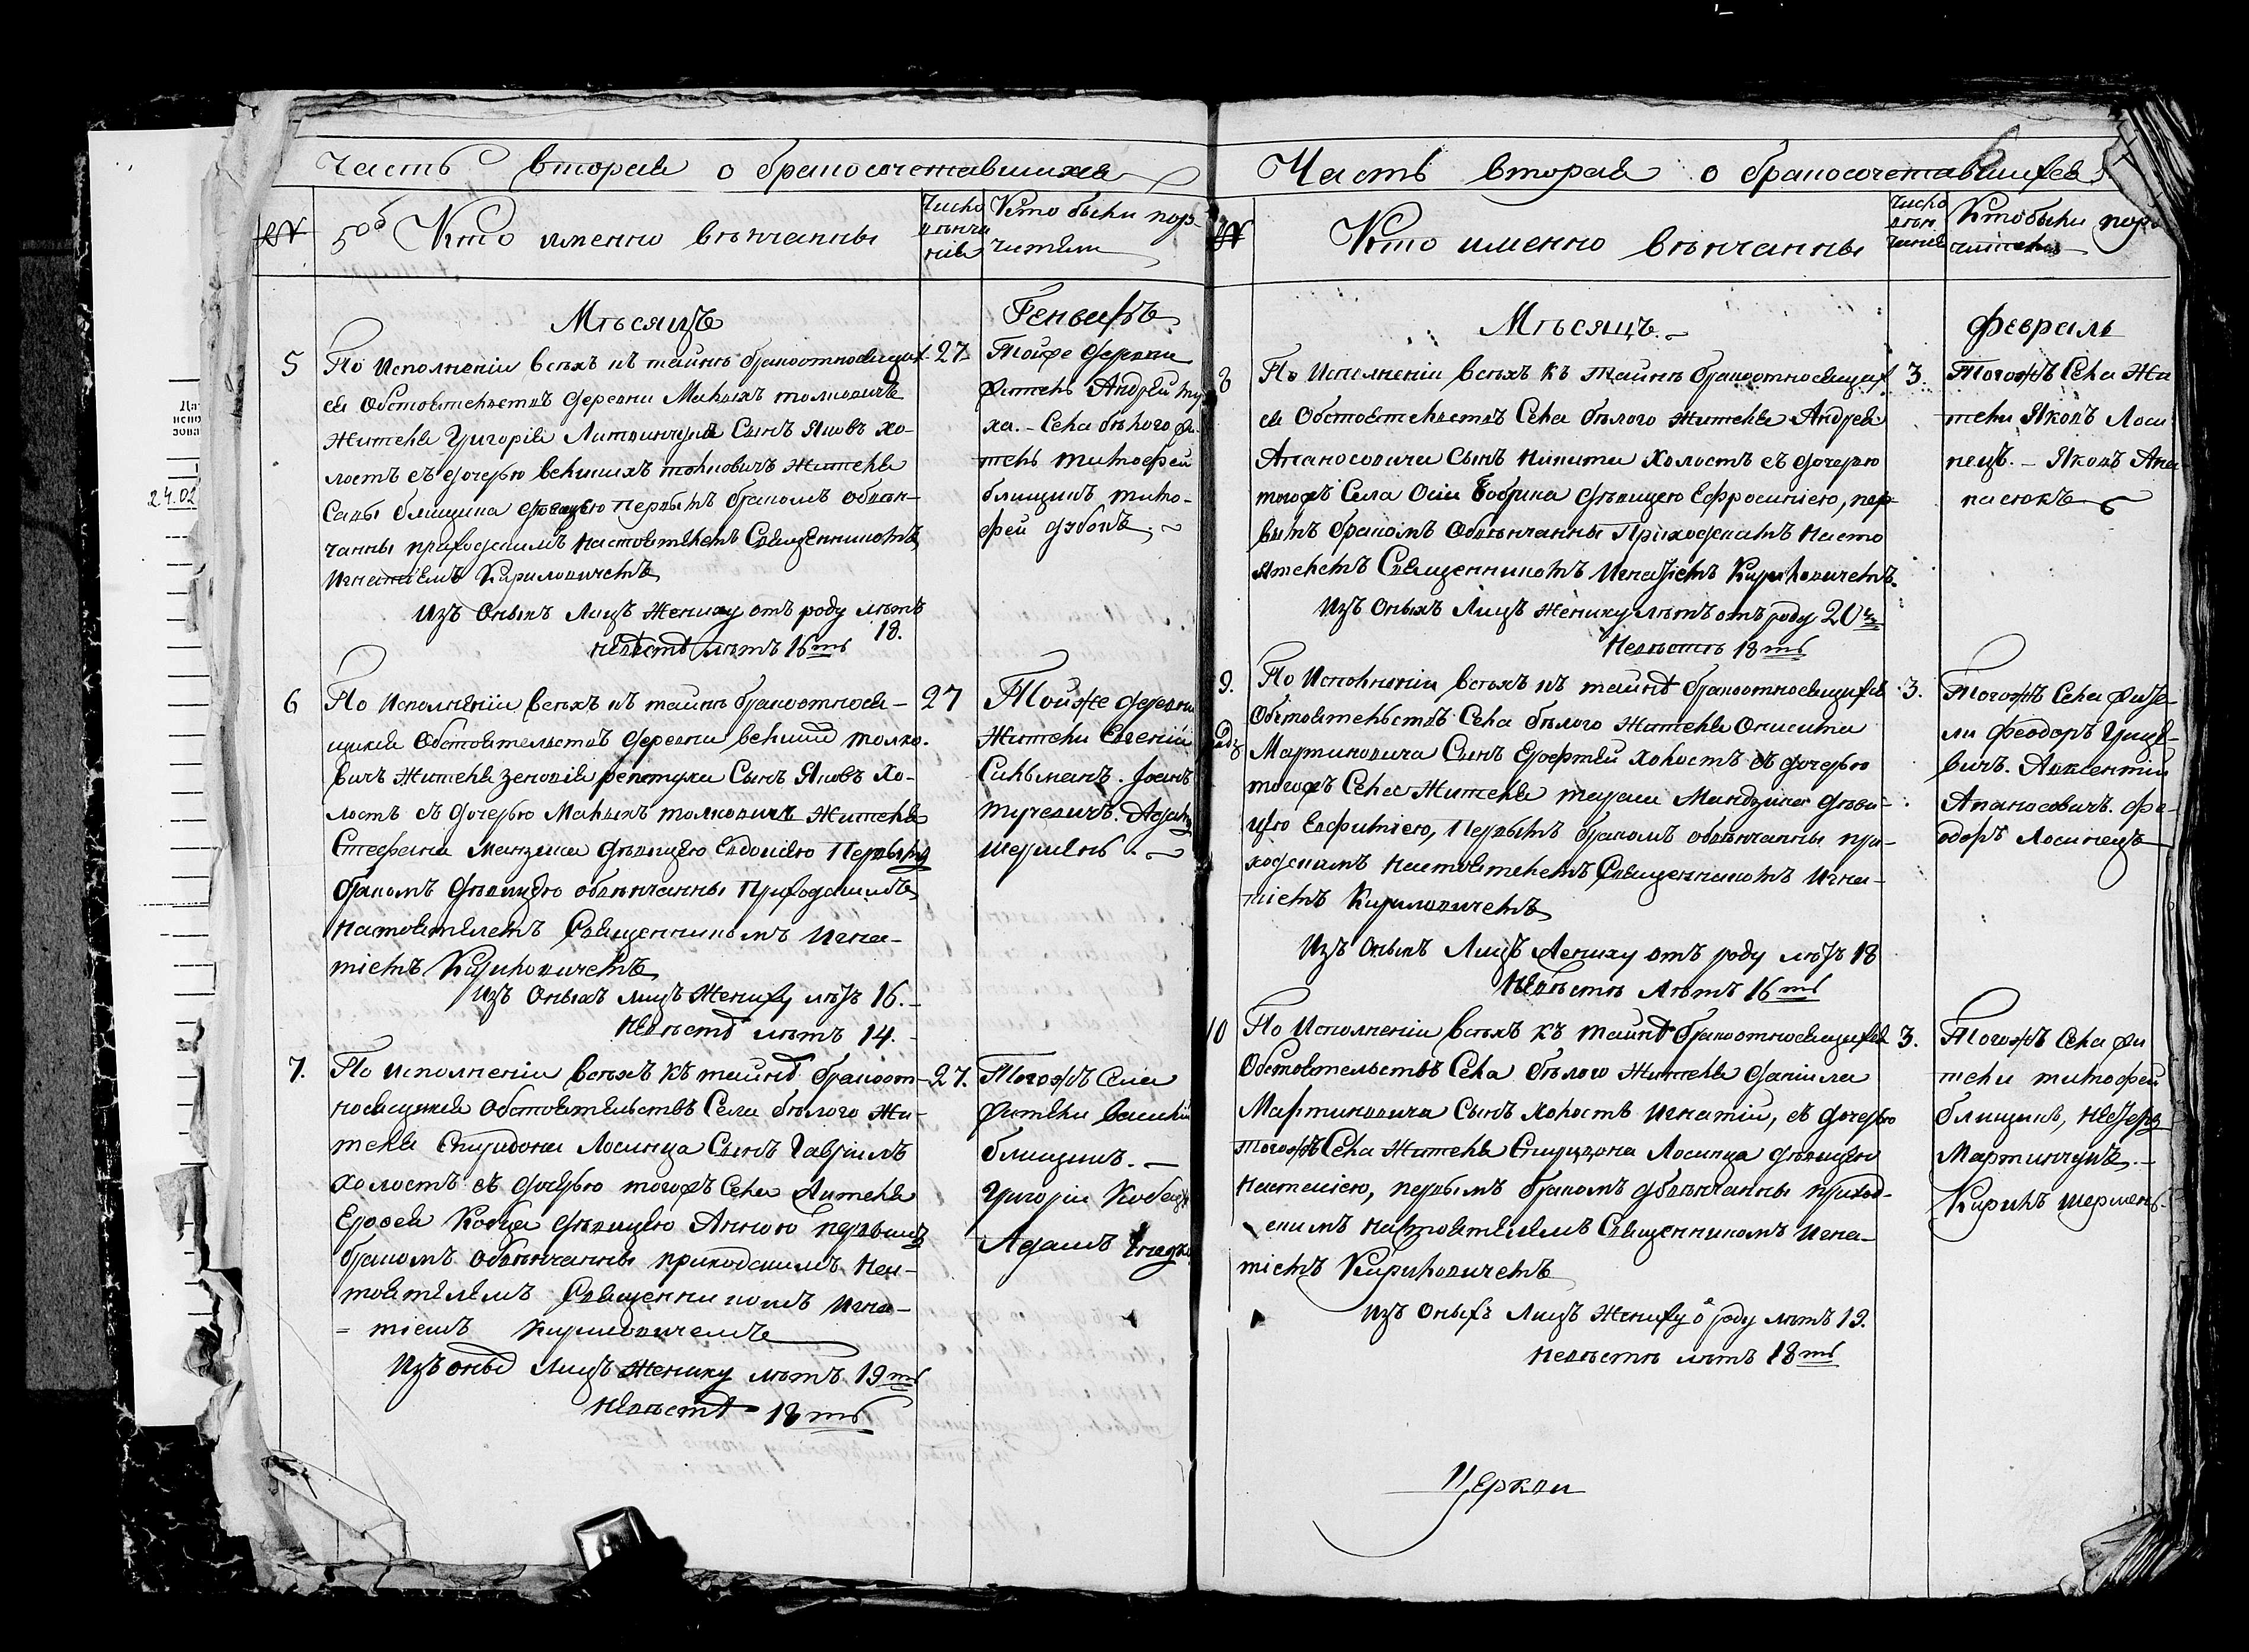 Часть вторая о бракосочетавшихся
№
Кто именно вѣнчанны
Число вѣнча нія
Кто были пору
чители
Мѣсяцъ
Генварь
5
По Исполненіи всѣхъ къ тайнѣ бракоотносящих
ся Обстоятельствъ деревни Малыхъ толковичъ
жителя Григорія Литвинчука Сынъ Яковъ хо-
лостъ съ дочерью великихъ толковичъ жителя
Савы блищика дѣвицею первымъ бракомъ обвѣн-
чанны приходскимъ настоятелемъ Священникомъ
Игнатіемъ Кириловичемъ
Изъ Оныхъ Лицъ Жениху отъ роду лѣтъ
18.
невѣстѣ лѣтъ 16ть
27
Тойже деревни
житель Андрей
ха. – Села бѣлого жи
тель тимофей
блищикъ тимо-
фей дубокъ
6
По Исполненіи всѣхъ къ тайнѣ бракоотнося-
щихся Обстоятельствъ деревни великихъ толко-
вичъ жителя зеновія репетухи Сынъ Яковъ Хо-
лостъ съ дочерью Малыхъ толковичъ жителя
Стефана дѣвицею Евдокіею Первымъ
бракомъ дѣвицею обвѣнчанны Приходскимъ
настоятелемъ Священникомъ Игна-
тіемъ Кириловичемъ
Изъ Оныхъ лицъ Жениху лѣтъ 16.
Невѣстѣ лѣтъ 14.
27
Тойже деревни
Жители Евгеній
Сильманъ. Іоанъ
туревичъ. Адамъ
шершень.
7.
По исполненіи всѣхъ къ тайнѣ бракоот-
носящихся Обстоятельствъ Села бѣлого Жи-
теля Спиридона Лосинца Сынъ Гавріилъ
холостъ съ дочерью тогожъ Села жителя
Ерофея Кобца дѣвицею Анною первымъ
бракомъ обвѣнчанны приходскимъ нас-
тоятелемъ Священникомъ Игна-
= тіемъ Кириловичемъ
Изъ оныхъ Лицъ Жениху лѣтъ 19ть
Невѣстѣ 18ть
27.
Тогожъ Села
жители василій
блищикъ. –
Григорій Кобецъ
Адамъ
Часть вторая о бракосочетавшихся
№
Кто именно вѣнчанны
Число вѣн чанія
Кто были пору
чители
Мѣсяцъ.
февраль
8
По Исполненіи всѣхъ къ тайнѣ бракоотносящих
ся Обстоятельствъ Села бѣлого жителя Андрея
Апаносовича Сынъ Никита Холостъ съ дочерью
тогожъ Села Осіи бобрика дѣвицею Ефросиніею, пер-
вымъ бракомъ Обвѣнчанны Приходскимъ Насто
ятелемъ Священникомъ Игнатіемъ Кириловичемъ.
Изъ Оныхъ Лицъ жениху лѣтъ отъ роду 20ть
Невѣстѣ 18ть
3.
Тогожъ Села Жи
тели Яковъ Лоси
нецъ. – Яковъ Апа-
насюкъ
9.
По Исполненіи всѣхъ къ тайнѣ бракоотносящихся
Обстоятельствъ Села бѣлого Жителя Онисима
Мартиновича Сынъ Ерофтей холостъ съ дочерью
тогожъ Села Жителя тараса Мандзика дѣви-
цею Евфиміею, Первымъ бракомъ обвѣнчанны при-
ходскимъ настоятелемъ Священникомъ Игна-
тіемъ Кириловичемъ
Изъ Оныхъ Лицъ Жениху отъ роду лѣтъ 18
Невѣстѣ лѣтъ 16ть
3.
Тогожъ Села жите-
ли Феодоръ Грице-
вичъ. Авксентій
Апаносовичъ. фе-
одоръ Лосинецъ
10
По Исполненіи всѣхъ къ тайнѣ бракоотносящихся
Обстоятельствъ Села бѣлого Жителя даніила
Мартиновича Сынъ холостъ Игнатій, съ дочерью
тогожъ Села Жителя Спиридона Лосинца дѣвицею
Настасіею, первымъ бракомъ обвѣнчанны приход-
скимъ настоятелемъ Священникомъ Игна-
тіемъ Кириловичемъ
Изъ Оныхъ Лицъ Жениху о роду лѣтъ 19.
Невѣстѣ лѣтъ 18ть
3.
Тогожъ Села жи
тели тимофей
блищикъ,
Мартинчукъ. –
Кирилъ шершень.
Церкви
24.02